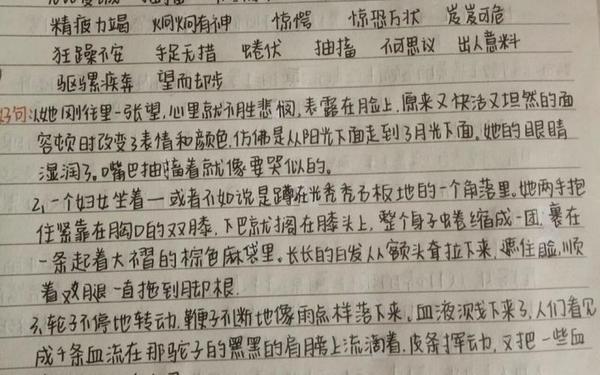 精疲力竭 炯炯有神 惊愕 惊恐万状 岌岌可危
狂躁不安 手足无措 蜷伏 抽搐 不可思议 出人意料
驱骡疾奔 望而却步
好句:1、她刚往里一张望,心里就不胜悲悯,表露在脸上,原来又快活又坦然的面
容顿时改变了表情和颜色,仿佛是从阳光下面走到了月光下面。她的眼睛
湿润了。嘴巴抽搐着就像要哭似的。
2、一个妇女坐着一或者不如说是蹲在光秃秃石板地的一个角落里。她两手抱
住紧靠在胸口的双膝,下巴就搁在膝头上,整个身子蜷缩成一团,裹在
一条起着大褶的棕色麻袋里。长长的白发从额头耷拉下来,遮住脸,顺
着双腿一直拖到脚根.
3、轮子不停地转动,鞭子不断地像雨点样落下来、血液溅下来了,人们看见
成千条血流在那驼子的黑黑的肩膀上流淌着,皮条挥动,又把一些血